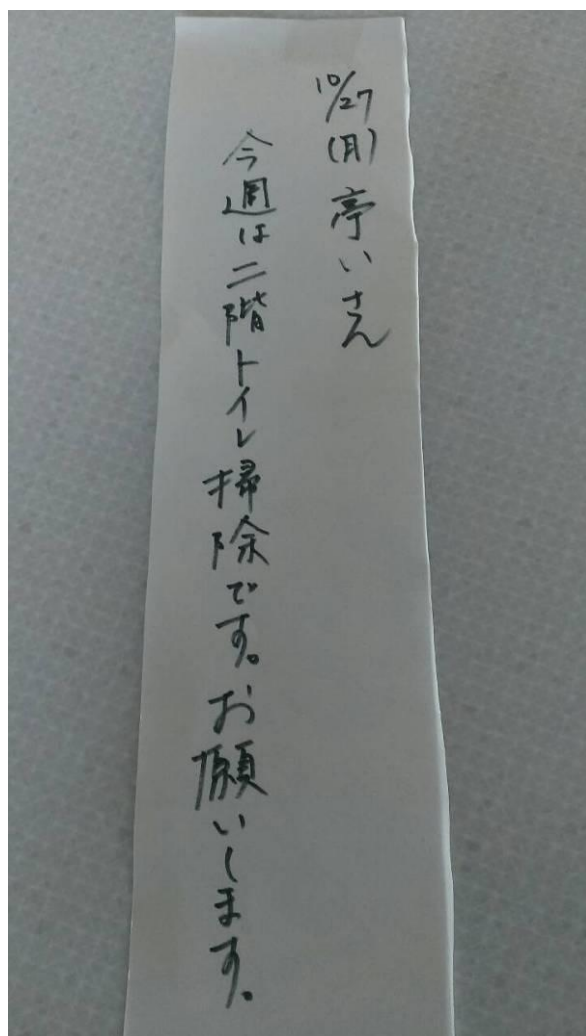 10/27(月) 亭いさん
今週は二階トイレ掃除です。お願いします。